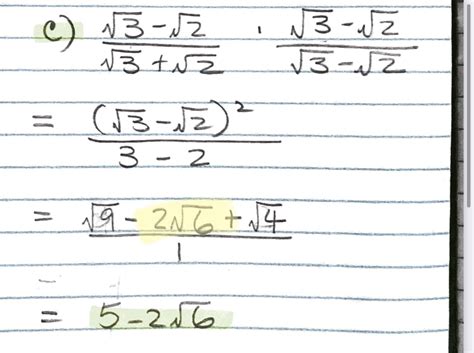 c) (√3 - √2)/(√3 + √2) · (√3 - √2)/(√3 - √2)
= (√3 - √2)²/(3 - 2)
= (√9 - 2√6 + √4)/1
= 5 - 2√6